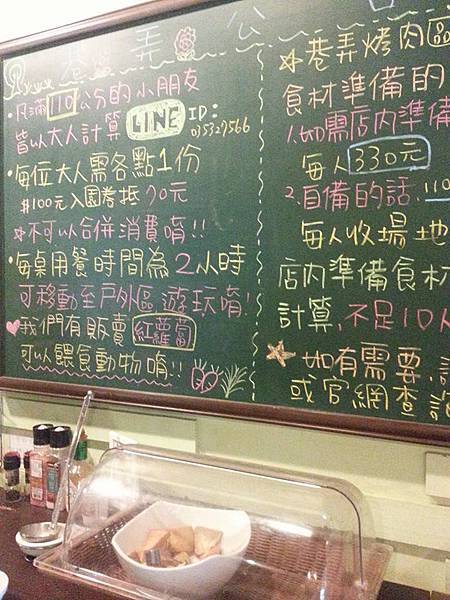 巷弄公告
·凡滿110公分的小朋友
皆以大人計算 LINE ID:
035327566
·每位大人需各點1份
$100元入園券抵70元
☆不可以合併消費唷!!
·每桌用餐時間為2小時
可移動至戶外區遊玩唷!
♥我們有販賣紅蘿蔔
可以餵食動物唷!!
☆巷弄烤肉區
食材準備的
1.如需店內準備
每人330元
2.自備的話,110
每人收場地
店內準備食材
計算,不足10人
如有需要,
或官網查詢